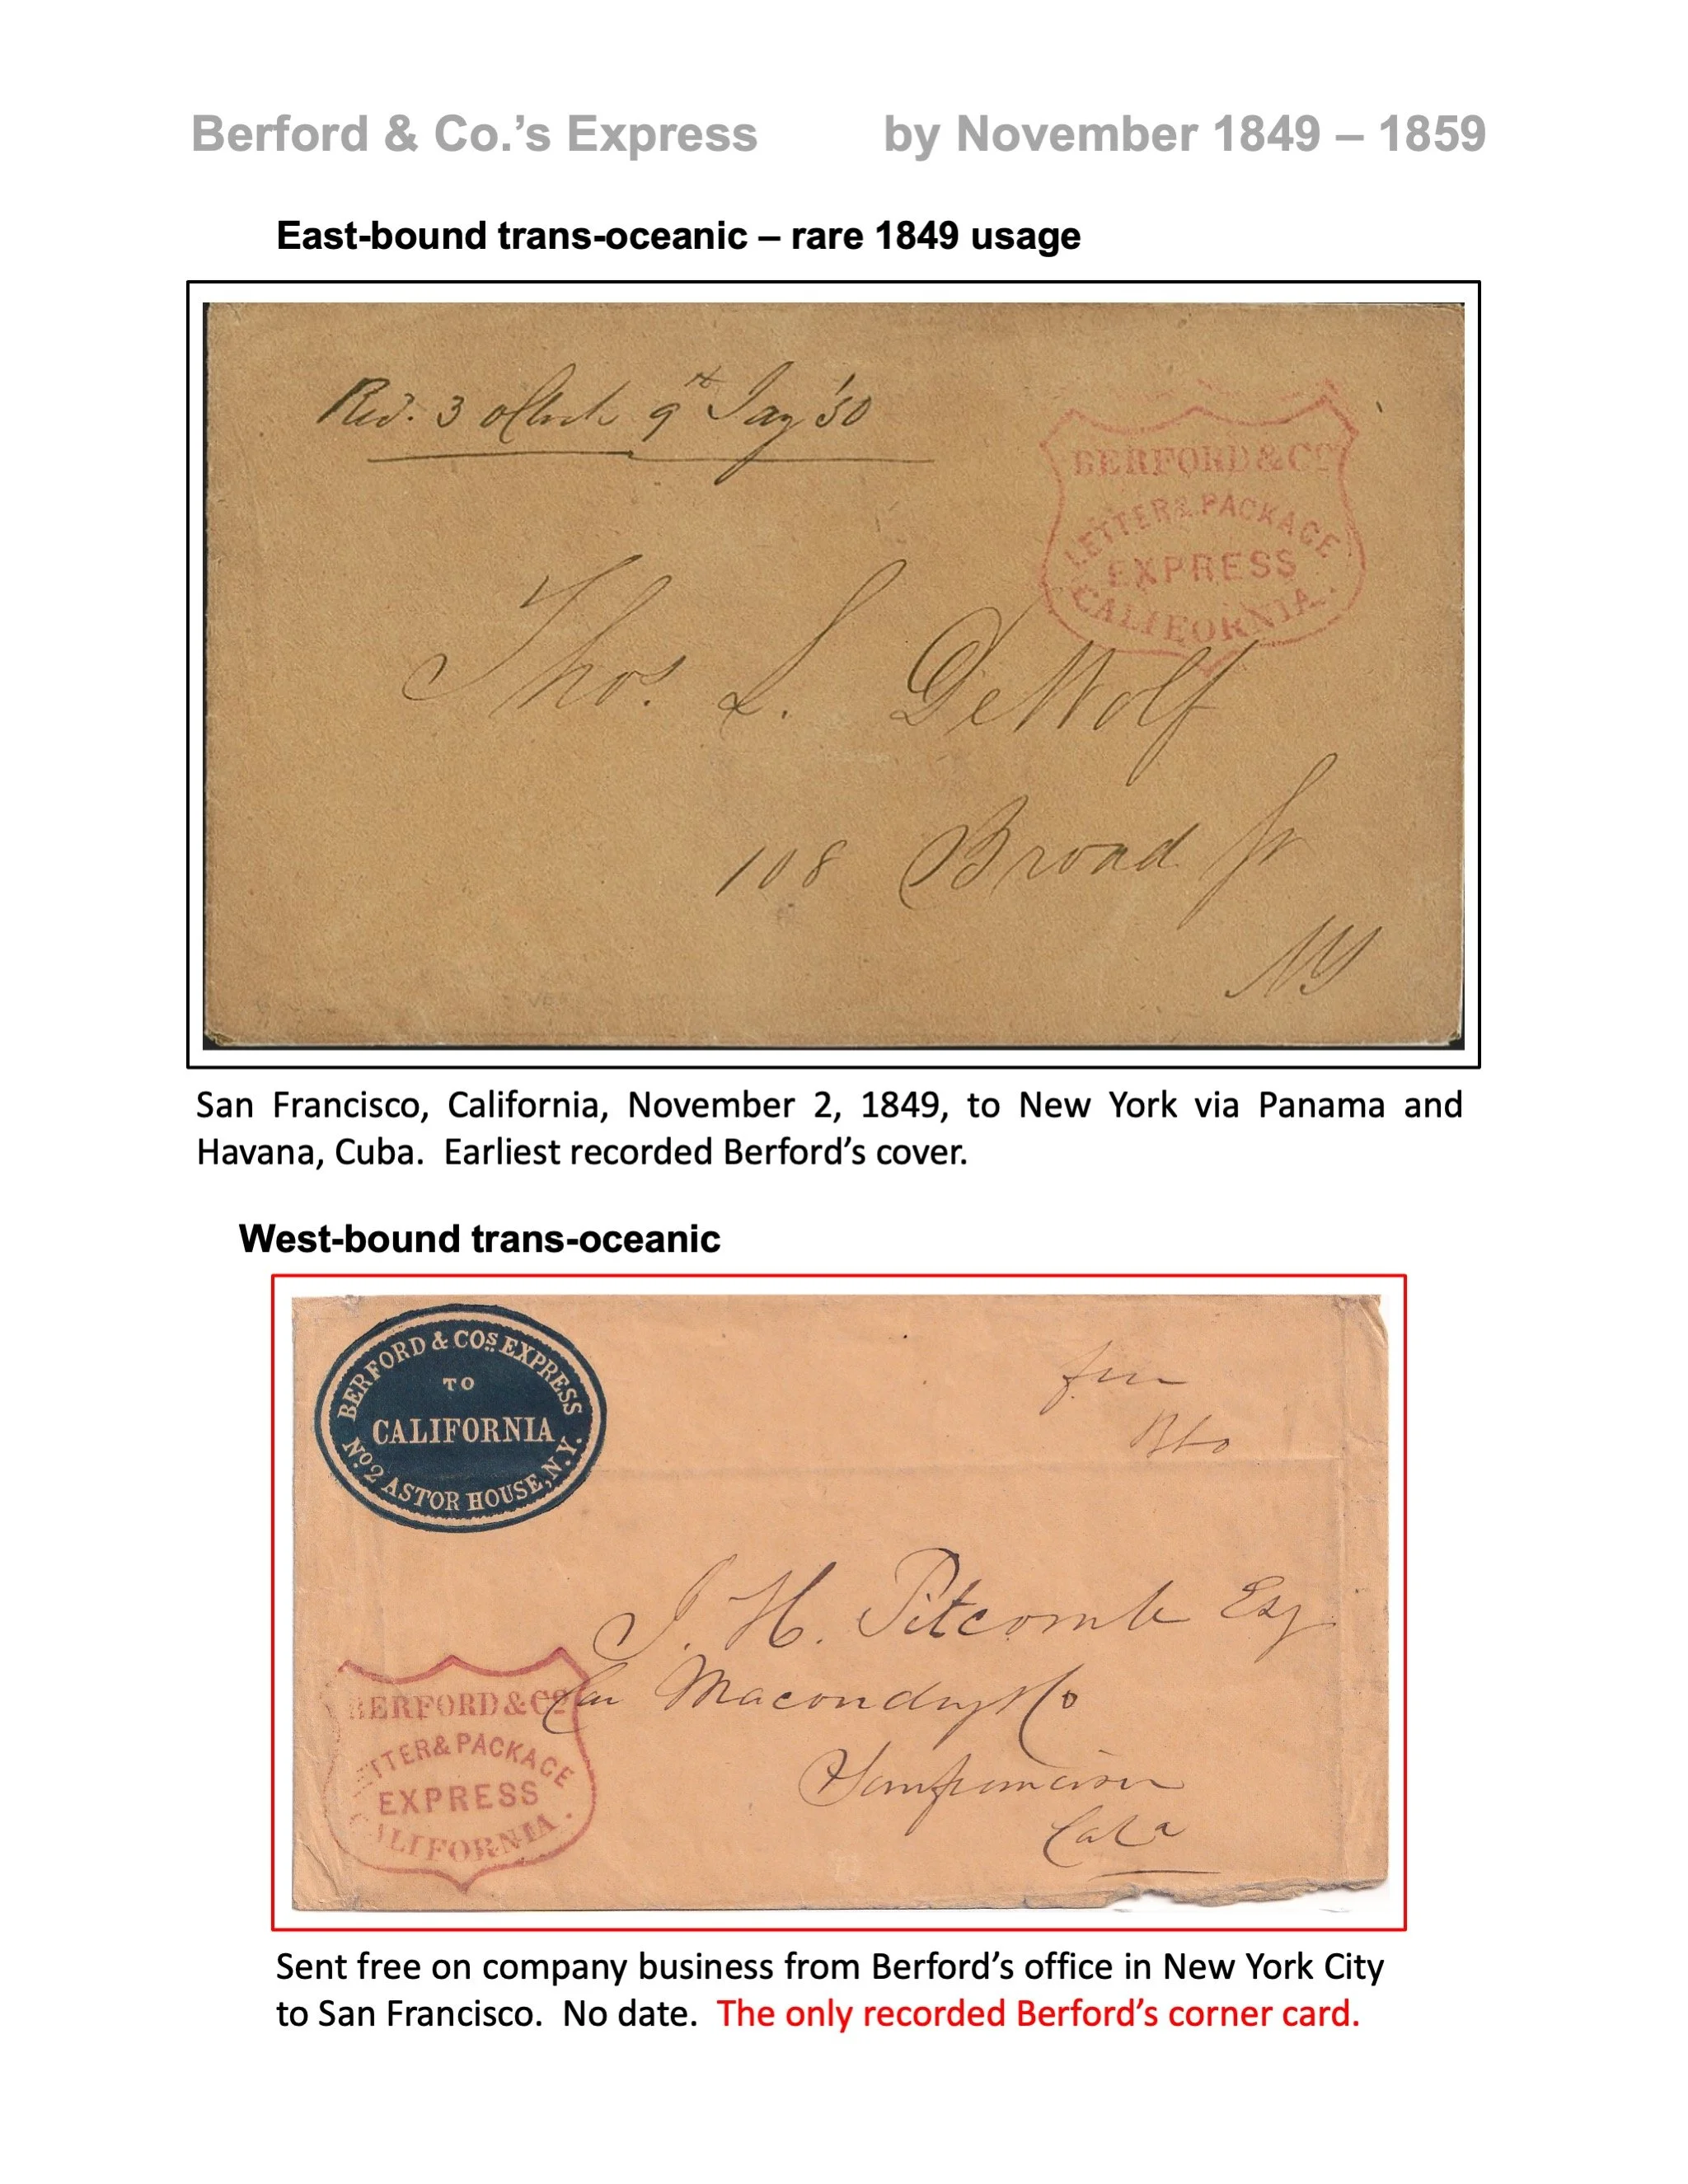 Berford & Co.’s Express by November 1849 – 1859
East-bound trans-oceanic – rare 1849 usage
Recd. 3 oClock 9th Jany '50
BERFORD & Co
LETTER & PACKAGE
EXPRESS
CALIFORNIA.
Thos. L. DeWolf
108 Broad St
NY
San Francisco, California, November 2, 1849, to New York via Panama and
Havana, Cuba. Earliest recorded Berford’s cover.
West-bound trans-oceanic
BERFORD & COs EXPRESS
TO
CALIFORNIA
No 2 ASTOR HOUSE, N.Y.
free
J. H. Titcomb Esq
Macondray & Co
BERFORD & Co
LETTER & PACKAGE
EXPRESS
CALIFORNIA.
Sanfrancisco
Cala
Sent free on company business from Berford’s office in New York City
to San Francisco. No date. The only recorded Berford’s corner card.